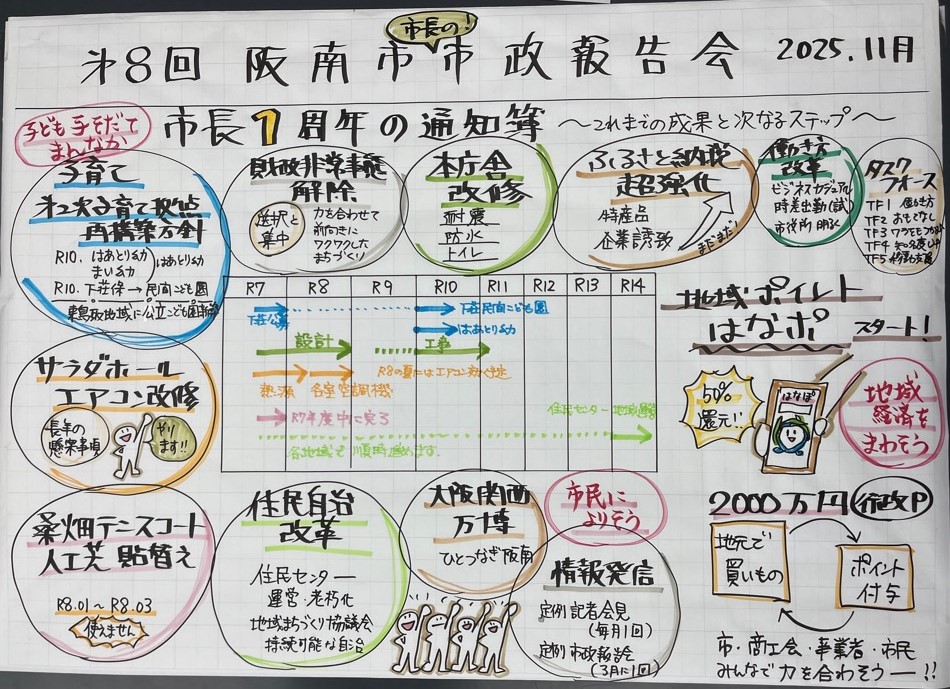 市長の!
第8回 阪南市市政報告会 2025.11月
市長1周年の通知簿 〜これまでの成果と次なるステップ〜
子ども子そだて
まんなか
子育て
第2次子育て拠点
再構築方針
R10. はあとり幼
まい幼
はあとり幼
R10. 下荘保→民間こども園
東鳥取地域に公立こども園
財政非常事態
解除
選択と
集中
力を合わせて
前向きに
ワクワクした
まちづくり
本庁舎
改修
耐震
防水
トイレ
ふるさと納税
超強化
特産品
企業誘致
まだまだ!
働き方
改革
ビジネスカジュアル
時差出勤(試)
市役所
タスク
フォース
TF1 働き方
TF2 おもてなし
TF3
TF4
TF5
R7 R8 R9 R10 R11 R12 R13 R14
下荘公募
下荘民間こども園
はあとり幼
設計
工事
熱源 各室空調機
R8の夏にはエアコン
R7年度中に完了
住民センター
各地域で順次進めます.
サラダホール
エアコン改修
長年の
懸案事項
やり
ます!!
地域ポイント
はなポ スタート!
50%
還元!!
はなポ
地域
経済を
まわそう
桑畑テニスコート
人工芝 貼替え
R8.01〜R8.03
使えません
住民自治
改革
住民センター
運営・老朽化
地域まちづくり協議会
持続可能な自治
大阪関西
万博
ひとつなぎ阪南
市民に
よりそう
情報発信
定例記者会見
(毎月1回)
定例市政報告会
(3月に1回)
2000万円 行政P
地元で
買いもの
ポイント
付与
市・商工会・事業者・市民
みんなで力を合わそうー!!